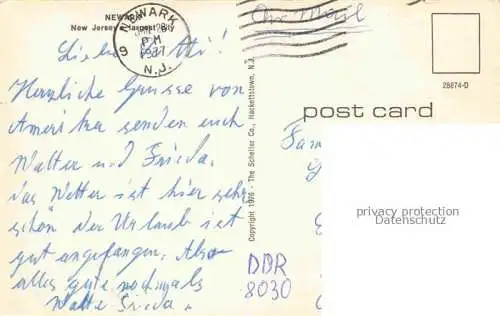 NEWARK
New Jersey's largest City
NEWARK
PM
1977
N.J.
Air Mail
28874-D
post card
Copyright 1976 - The Scheller Co., Hackettstown, N.J.
Liebe
Herzliche Grüsse von
Amerika senden euch
Walter und Frieda.
das Wetter ist hier sehr
schön der Urlaub ist
gut angefangen. Also
alles gute nochmals
Walter Frieda.
DDR
8030
privacy protection
Datenschutz